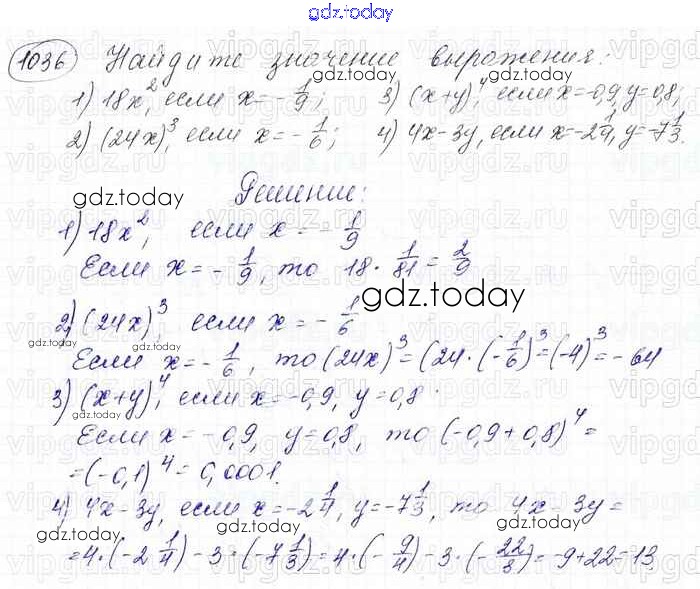 gdz.today
1036 Найдите значение выражения:
1) 18x², если x = -1/9; 3) (x+y)⁴, если x=-0,9, y=0,8;
gdz.today gdz.today
2) (24x)³, если x = -1/6; 4) 4x-3y, если x=-2 1/9, y=-7 1/3.
Решение:
gdz.today
1) 18x², если x = -1/9
Если x = -1/9, то 18 · 1/81 = 2/9
gdz.today
2) (24x)³, если x = -1/6
gdz.today
Если x = -1/6, то (24x)³ = (24·(-1/6)³ = (-4)³ = -64
3) (x+y)⁴, если x = -0,9, y = 0,8.
gdz.today
Если x = -0,9, y = 0,8, то (-0,9+0,8)⁴ =
= (-0,1)⁴ = 0,0001.
4) 4x-3y, если x = -2 1/4, y = -7 1/3, то 4x-3y =
gdz.today gdz.today
= 4·(-2 1/4) - 3·(-7 1/3) = 4·(-9/4) - 3·(-22/3) = -9+22 = 13.